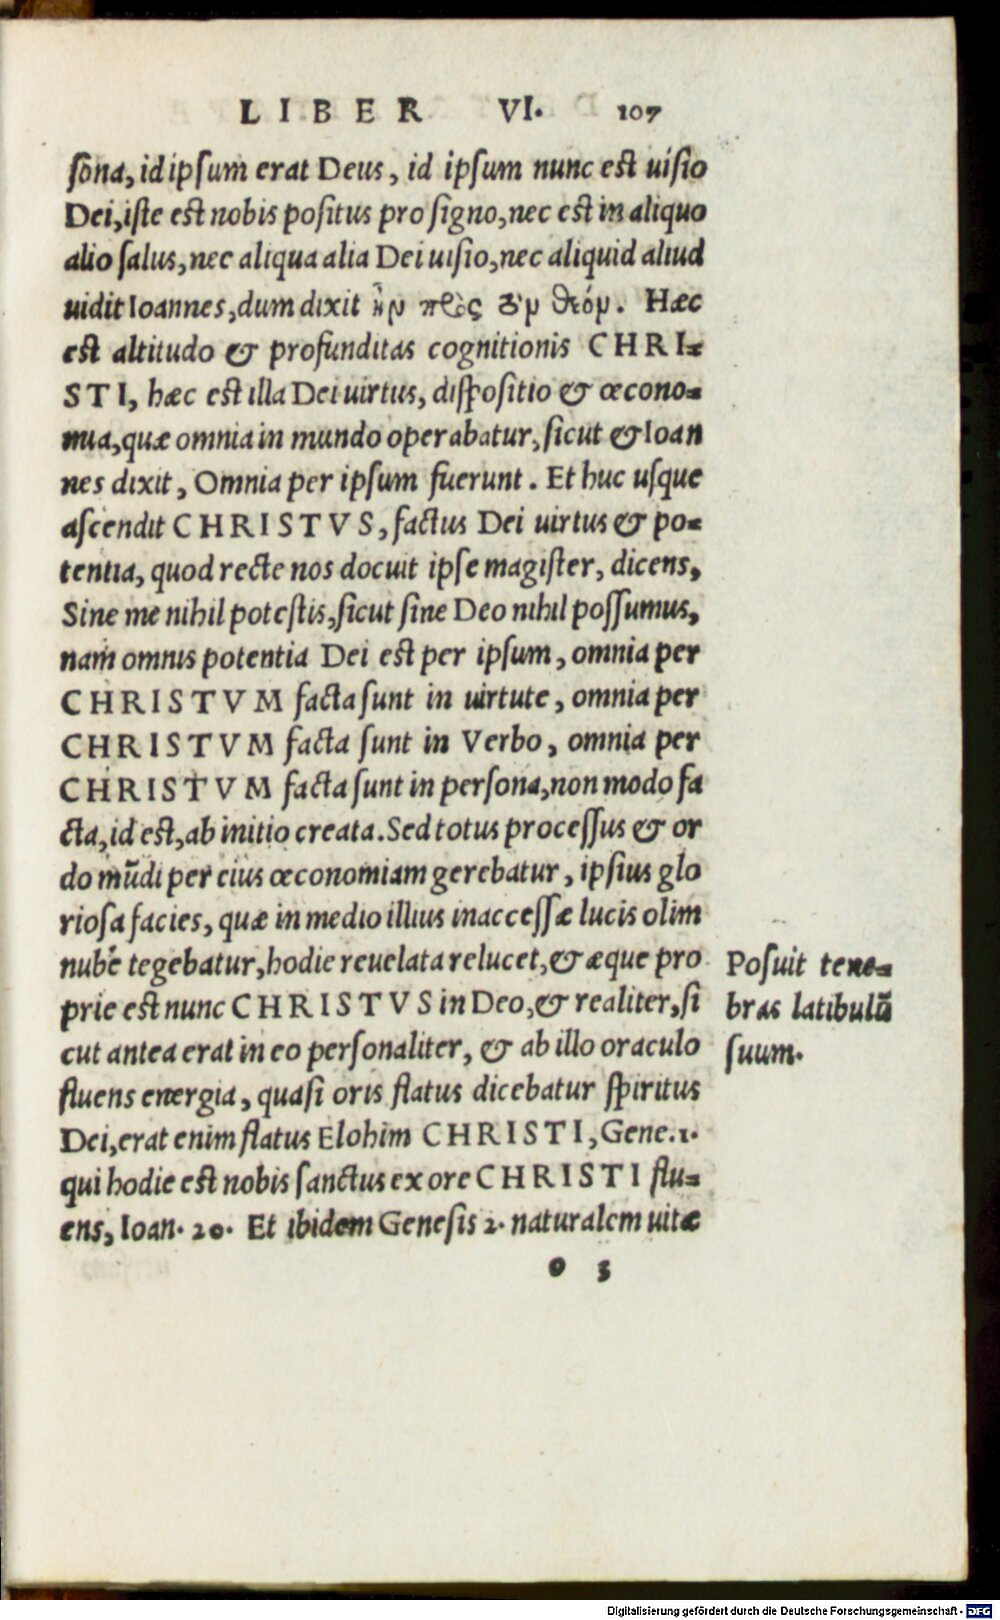 LIBER VI. 107
sōna, id ipsum erat Deus, id ipsum nunc est uisio
Dei, iste est nobis positus pro signo, nec est in aliquo
alio salus, nec aliqua alia Dei uisio, nec aliquid aliud
uidit Ioannes, dum dixit ἦν πρὸς τὸν θεόν. Hæc
est altitudo & profunditas cognitionis CHRI-
STI, hæc est illa Dei uirtus, dispositio & œcono-
mia, quæ omnia in mundo operabatur, sicut & Ioan
nes dixit, Omnia per ipsum fuerunt. Et huc usque
ascendit CHRISTVS, factus Dei uirtus & po-
tentia, quod recte nos docuit ipse magister, dicens,
Sine me nihil potestis, sicut sine Deo nihil possumus,
nam omnis potentia Dei est per ipsum, omnia per
CHRISTVM facta sunt in uirtute, omnia per
CHRISTVM facta sunt in Verbo, omnia per
CHRISTVM facta sunt in persona, non modo fa
cta, id est, ab initio creata. Sed totus processus & or
do mūdi per eius œconomiam gerebatur, ipsius glo
riosa facies, quæ in medio illius inaccessæ lucis olim
nube tegebatur, hodie reuelata relucet, & æque pro
prie est nunc CHRISTVS in Deo, & realiter, si
cut antea erat in eo personaliter, & ab illo oraculo
fluens energia, quasi oris flatus dicebatur spiritus
Dei, erat enim flatus Elohim CHRISTI, Gene. 1.
qui hodie est nobis sanctus ex ore CHRISTI flu-
ens, Ioan. 20. Et ibidem Genesis 2. naturalem uitæ
o 3
Posuit tene-
bras latibulū
suum.
Digitalisierung gefördert durch die Deutsche Forschungsgemeinschaft - DFG